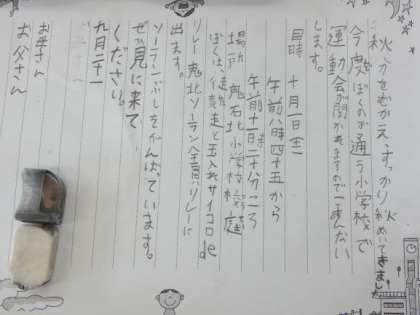 秋分をむかえ、すっかり秋めいてきました
今度ぼくの通う小学校で
運動会が開かれますのでごあんない
します。
日時 十月一日(土)
午前八時四十五から
午前十時二十分ごろ
場所 鬼石北小学校校庭
ぼくは、徒競走と玉入れサイコロde
リレー鬼北ソーラン全員リレーに
出ます。
ソーランぶしをがんばっています。
ぜひ見に来て
ください。
九月二十一
お母さん
お父さん